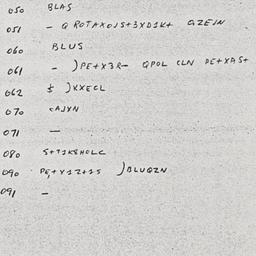 050 BLAS
051 - Q ROTAXOJS+3XD1K+ QZEIN
060 BLUS
061 - )PE+X3R- QPOL CLN PE+XAS+
062 $ )XXECL
070 CAJXN
071 -
080 S+T1KSHOLC
090 PE,+X1Z+1S )BLUQZN
091 -